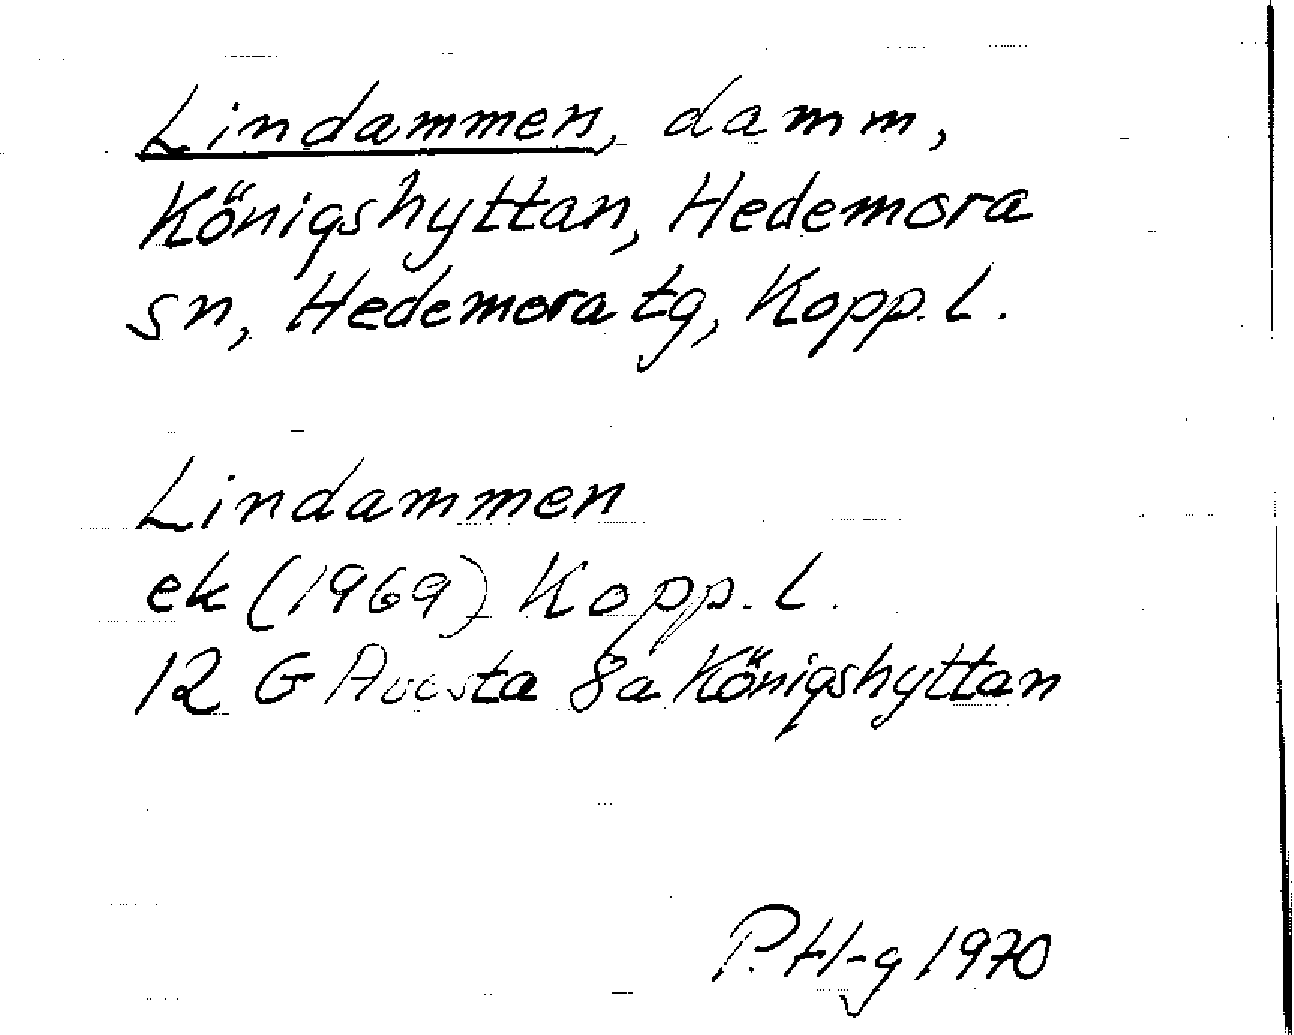 Lindammen, damm,
Königshyttan, Hedemora
sn, Hedemora tg, Kopp. l.
Lindammen
ek (1969) Kopp. l.
12 G Avesta 8a Königshyttan
P. H-g 1970